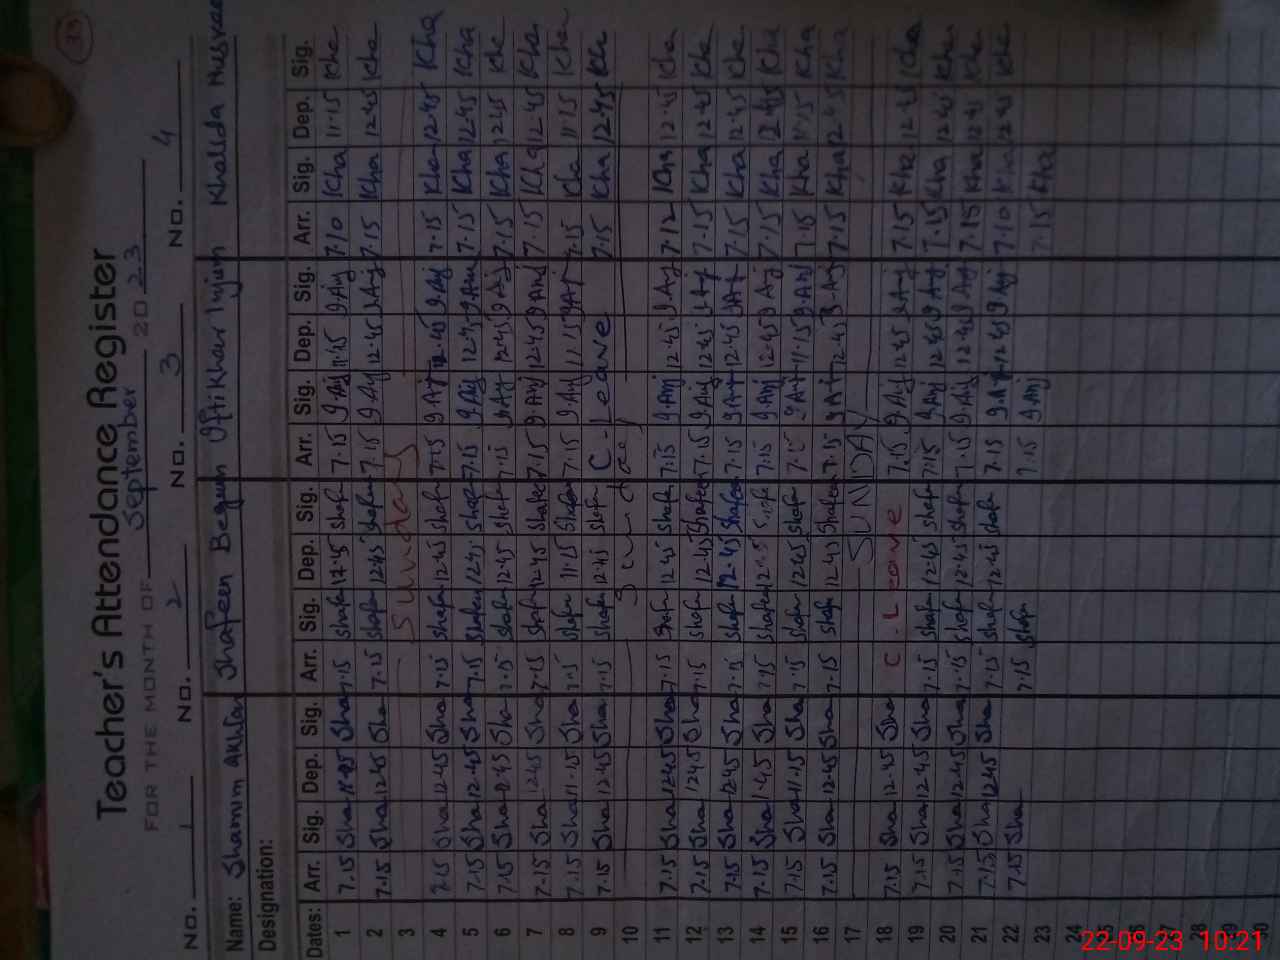 33
Teacher's Attendance Register
FOR THE MONTH OF September 2023
No. 1 No. 2 No. 3 No. 4
Name: Shamim akhtar Shafeen Begum Iftikhar Injum Khalida
Designation:
Dates: Arr. Sig. Dep. Sig. Arr. Sig. Dep. Sig. Arr. Sig. Dep. Sig. Arr. Sig. Dep. Sig.
1 7.15 Sha Sha 7.15 Shafn 12.45 Shafn 7.15 9.Anj 11.15 9.Anj 7.10 Kha 11.15 Kha
2 7.15 Sha 12.45 Sha 7.15 Shafn 12.45 Shafn 7.15 9.Anj 12.45 9.Anj 7.15 Kha 12.45 Kha
3 Sunday
4 7.15 Sha 12.45 Sha 7.15 Shafn 12.45 Shafn 7.15 9.Anj 12.45 9.Anj 7.15 Kha 12.45 Kha
5 7.15 Sha 12.45 Sha 7.15 Shafn 12.45 Shafn 7.15 9.Anj 12.45 9.Anj 7.15 Kha 12.45 Kha
6 7.15 Sha 12.45 Sha 7.15 Shafn 12.45 Shafn 7.15 9.Anj 12.45 9.Anj 7.15 Kha 12.45 Kha
7 7.15 Sha 12.45 Sha 7.15 Shafn 12.45 Shafn 7.15 9.Anj 12.45 9.Anj 7.15 Kha 12.45 Kha
8 7.15 Sha 11.15 Sha 7.15 Shafn 11.15 Shafn 7.15 9.Anj 11.15 9.Anj 7.15 Kha 11.15 Kha
9 7.15 Sha 12.45 Sha 7.15 Shafn 12.45 Shafn C-Leave 7.15 Kha 12.45 Kha
10 Sunday
11 7.15 Sha 12.45 Sha 7.15 Shafn 12.45 Shafn 7.15 9.Anj 12.45 9.Anj 7.12 Kha 12.45 Kha
12 7.15 Sha 12.45 Sha 7.15 Shafn 12.45 Shafeen 7.15 9.Anj 12.45 9.Anj 7.15 Kha 12.45 Kha
13 7.15 Sha 12.45 Sha 7.15 Shafn 12.45 Shafeen 7.15 9.Anj 12.45 9.Anj 7.15 Kha 12.45 Kha
14 7.15 Sha 1.45 Sha 7.15 Shafen 7.15 9.Anj 12.45 9.Anj 7.15 Kha 12.45 Kha
15 7.15 Sha 11.15 Sha 7.15 Shafn 12.45 Shafn 7.15 9.Anj 11.15 9.Anj 7.15 Kha 11.15 Kha
16 7.15 Sha 12.45 Sha 7.15 Shafn 12.45 Shafeen 7.15 9.Anj 12.45 9.Anj 7.15 Kha 12.45 Kha
17 SUNDAY
18 7.15 Sha 12.45 Sha C.Leave 7.15 9.Anj 12.45 9.Anj 7.15 Kha 12.45 Kha
19 7.15 Sha 12.45 Sha 7.15 Shafn 12.45 Shafn 7.15 9.Anj 12.45 9.Anj 7.15 Kha 12.45 Kha
20 7.15 Sha 12.45 Sha 7.15 Shafn 12.45 Shafn 7.15 9.Anj 12.45 9.Anj 7.15 Kha 12.45 Kha
21 7.15 Sha 12.45 Sha 7.15 Shafn 12.45 Shafn 7.15 9.Anj 12.45 9.Anj 7.10 Kha 12.45 Kha
22 7.15 Sha 7.15 Shafn 7.15 9.Anj 7.15 Kha
23
24
25
26
27
28
29
30
22-09-23 10:21